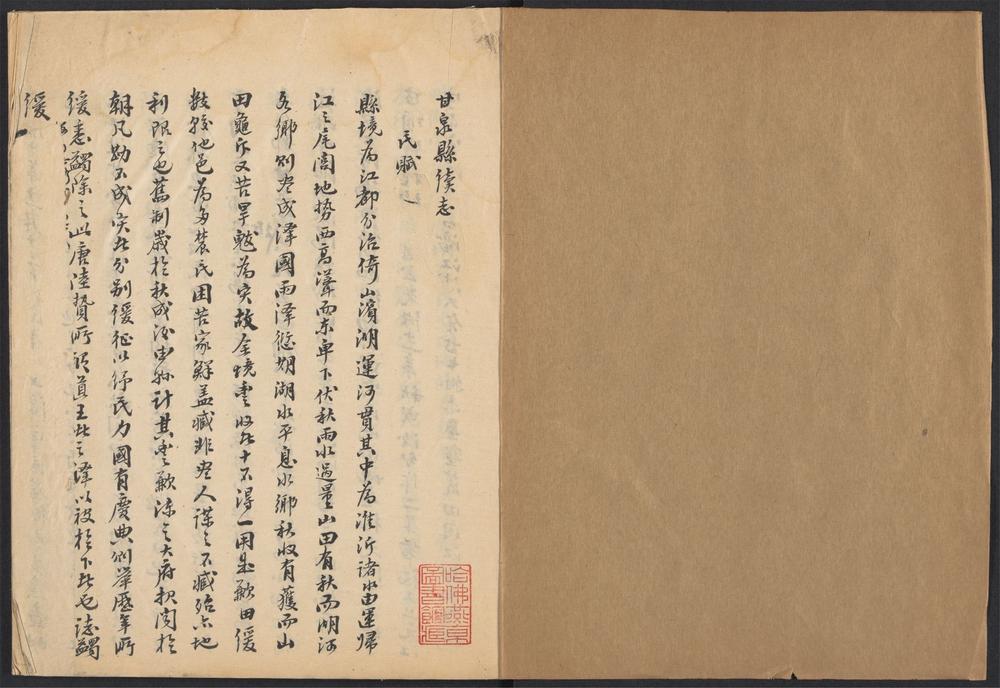 甘泉縣續志
民賦一
縣境為江都分治倚山濱湖運河貫其中為淮沂諸水由運歸
江之尾閭地勢西高瀽而東卑下伏秋雨水過量山田有秋而湖河
各鄉則盡成澤國雨澤愆期湖水平息水鄉秋收有獲而山
田龜坼又苦旱魃為災故全境豐收者十不得一用是歉田緩
數較他邑為多農民困苦家鮮蓋藏非盡人謀之不臧殆亦地
利限之也舊制歲於秋成後由縣計其豐歉陳之大府報聞於
朝凡勘不成災者分別緩征以紓民力國有慶典則舉歷年所
緩悉蠲除之此唐陸贄所謂道王者之澤以被於下者也誌蠲
緩
哈佛燕京圖書館珍